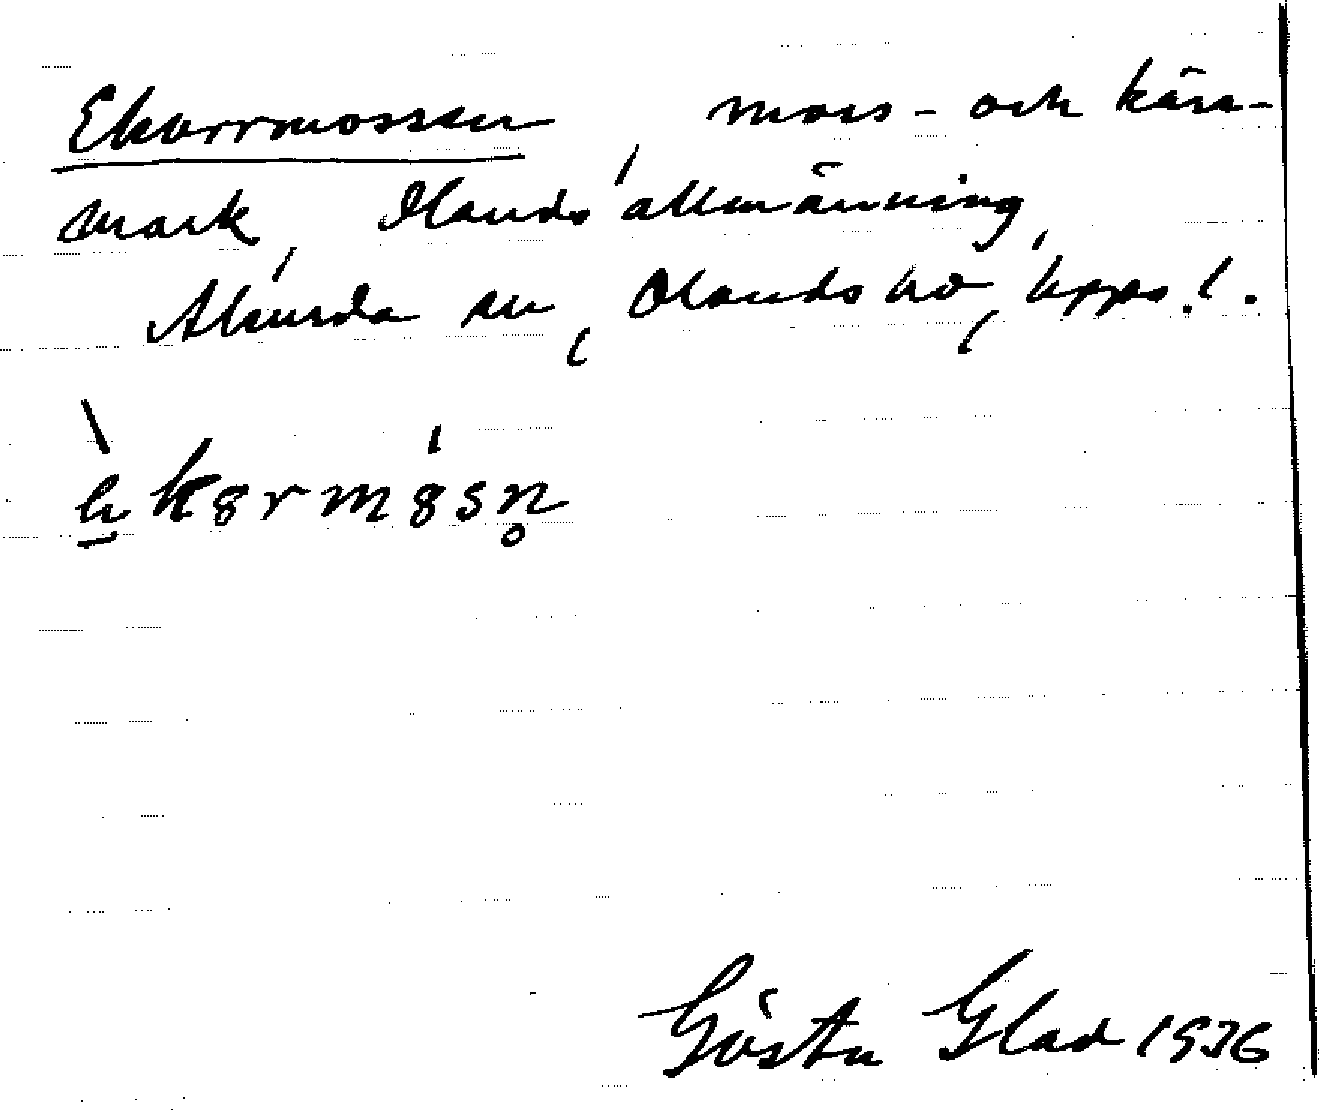 Ekorrmossen, moss- och kärr-
mark, Olands allmänning,
Alunda sn, Olands hd, Upps. l.
èkərmə́sn̥
Gösta Glad 1936